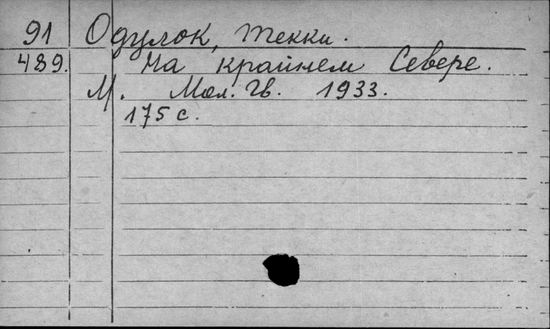 91 Одулок, Текки.
489. На крайнем Севере.
М. Мол. Гв. 1933.
175 с.